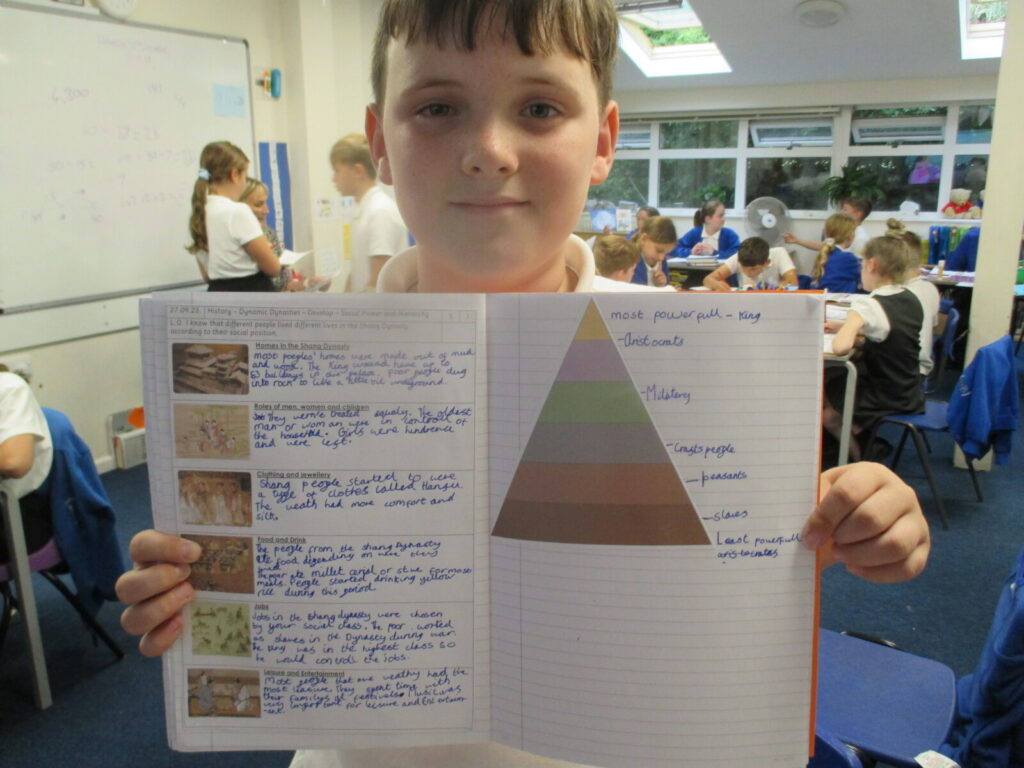 27.09.23. | History - Dynamic Dynasties - Develop - Social Power and Hierarchy
L.O. I know that different people lived different lives in the Shang Dynasty
according to their social position.
Homes in the Shang Dynasty
Most peoples' homes were made out of mud
and wood. The King would have up to
53 buildings in palace. Poor people dug
into rock to live a little bit underground.
Roles of men, women and children
They weren't treated equaly. The oldest
man or woman were in controll of
the household. Girls were hindrence
and were left.
Clothing and jewellery
Shang people started to were
a type of clothes called Hangfu.
The weath had more comfort and
silk.
Food and Drink
The people from the Shang Dynasty
ate food depending on were they
The poor ate millet cerial or stue for most
meals People started drinking yellow
rice during this period.
Jobs
Jobs in the Shang dynasty were chosen
by your social class. The poor worked
as slaves in the Dynasty during war.
The king was in the highest class so
he would controll the jobs.
Leisure and Entertainment
Most people that are wealthy had the
most leasure. They spent time with
their families at festivels. Music was
very important for leisure and
most powerfull - King
Aristocrats
Military
Crafts people
peasants
slaves
Least powerfull
aristocrates
6,300